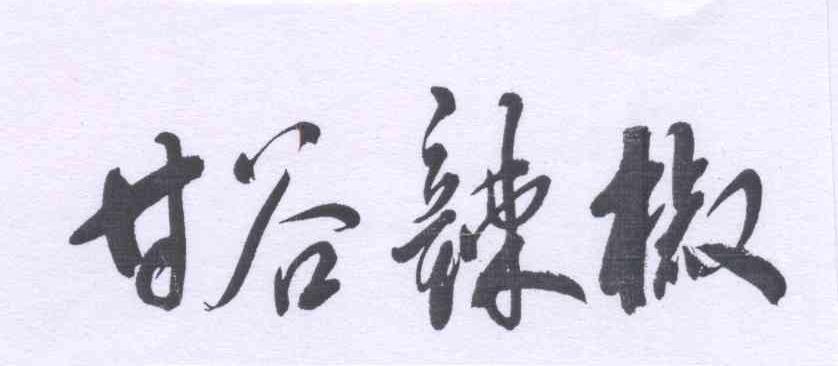 甘谷辣椒